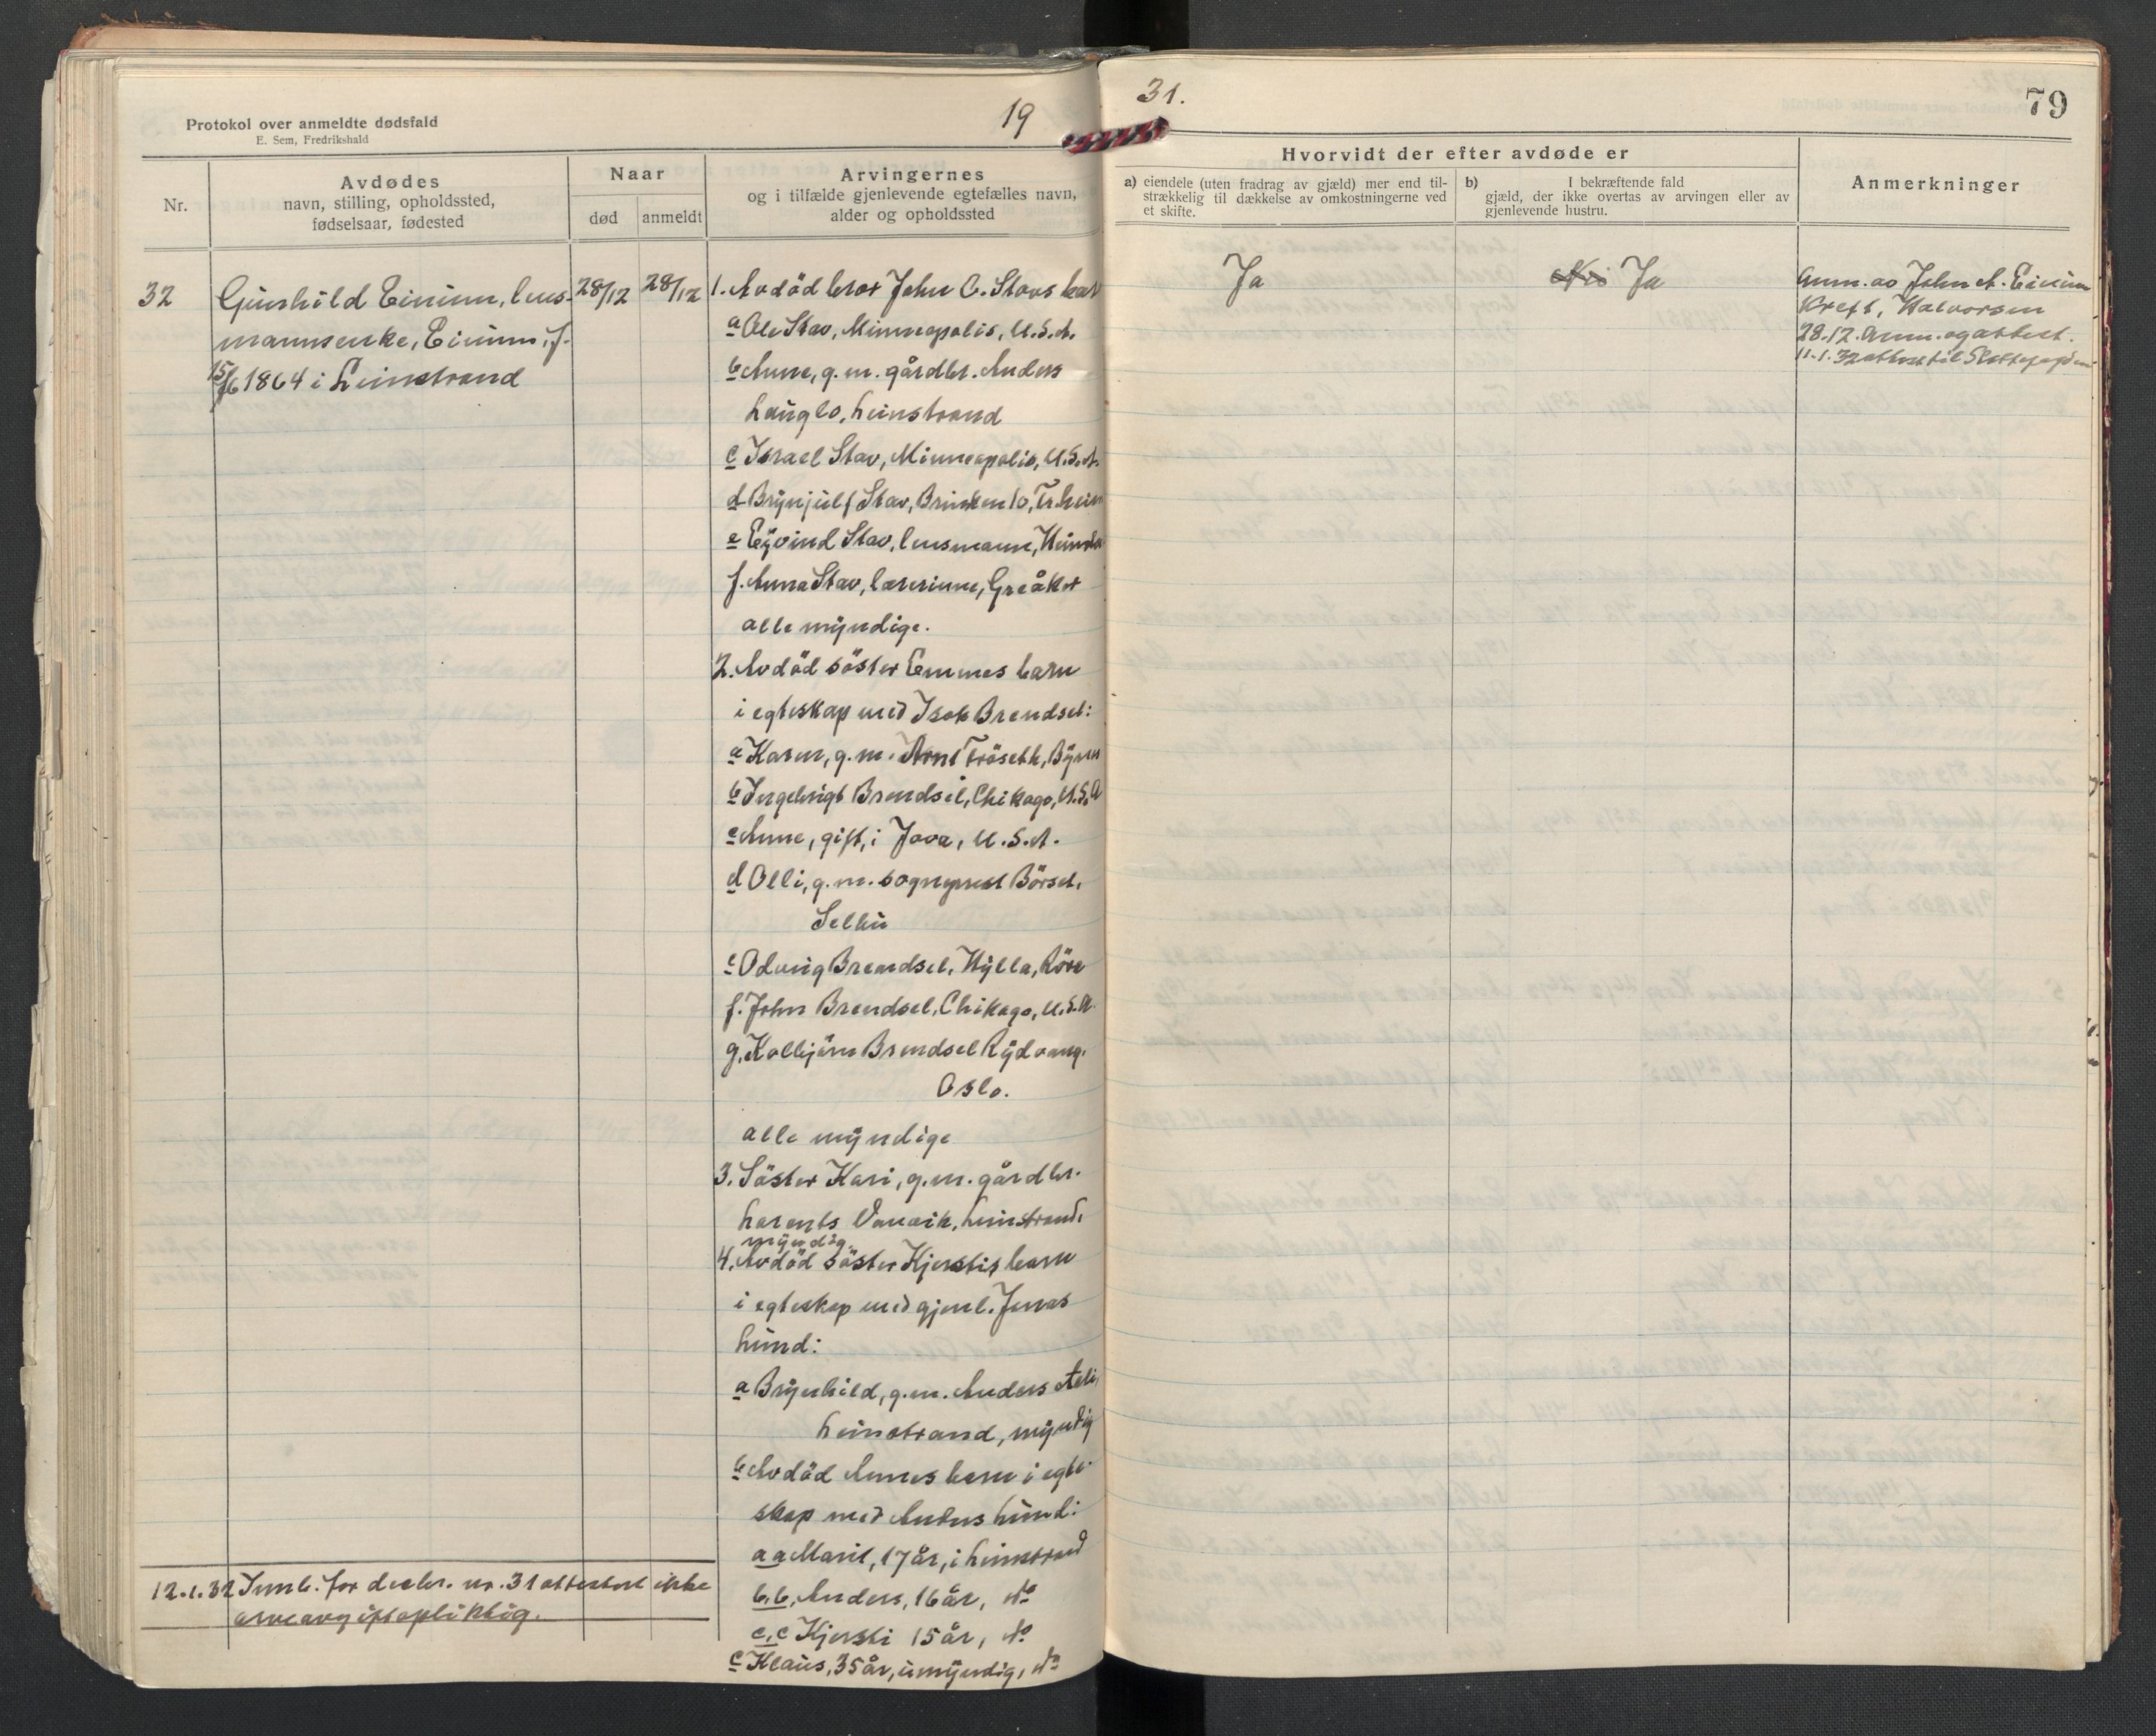 Protokol over anmeldte dødsfald
E. Sem, Fredrikshald
19
31.
79
Nr.
Avdødes
navn, stilling, opholdssted,
fødselsaar, fødested
Naar
død
anmeldt
Arvingernes
og i tilfælde gjenlevende egtefælles navn,
alder og opholdssted
Hvorvidt der efter avdøde er
a) eiendele (uten fradrag av gjæld) mer end til-
strækkelig til dækkelse av omkostningerne ved
et skifte.
b) I bekræftende fald
gjæld, der ikke overtas av arvingen eller av
gjenlevende hustru.
Anmerkninger
32
Gunhild Einum, lens-
mannsenke, Einum, f.
15/6 1864 i Leinstrand
28/12
28/12
1. Avdöd bror John O. Stavs barn
a Ole Stav, Minneapolis, U.S.A.
b Anne, g.m. gårdbr. Anders
Hauglo, Leinstrand
c Israel Stav, Minneapolis, U.S.A.
d Brynjulf Stav, Brinken 10, Tr.heim
e Eyvind Stav, lensmann,
f. Anna Stav, lærerinne, Greåker
alle myndige.
2. Avdöd söster Emmes barn
i egteskap med Isak Brendsel:
a Karen, g.m. Arnt Fröseth, Bynes
b Ingebrigt Brendsel, Chikago, U.S.A
c Anne, gift, i Jova, U.S.A.
d Olli, g.m. sogneprest Börset,
Selbu
e Odvig Brendsel, Hylla, Röra
f. John Brendsel, Chikago, U.S.A.
g. Kolbjörn Brendsel Rydvang,
Oslo.
alle myndige
3. Söster Kari, g.m. gårdbr.
Larents Vanvik, Leinstrand,
myndig.
4. Avdöd söster Kjerstis barn
i egteskap med gjenl. Jonas
Lund:
a Brynhild, g.m. Anders
Leinstrand, myndig
b Avdöd Annes barn i egte-
skap med Anders Lund:
a a Marit, 17 år, i Leinstrand
b.b. Anders, 16 år, do
c.c Kjersti 15 år, do
c Klaus, 35 år, umyndig, do
12.1.32 Innb. for decbr. nr. 31 attestert ikke
arveavgiftspliktig.
Ja
Nei Ja
Anm. av John A. Einum
Kreft, Halvorsen
28.12. Anm. og attest.
11.1.32 attest til